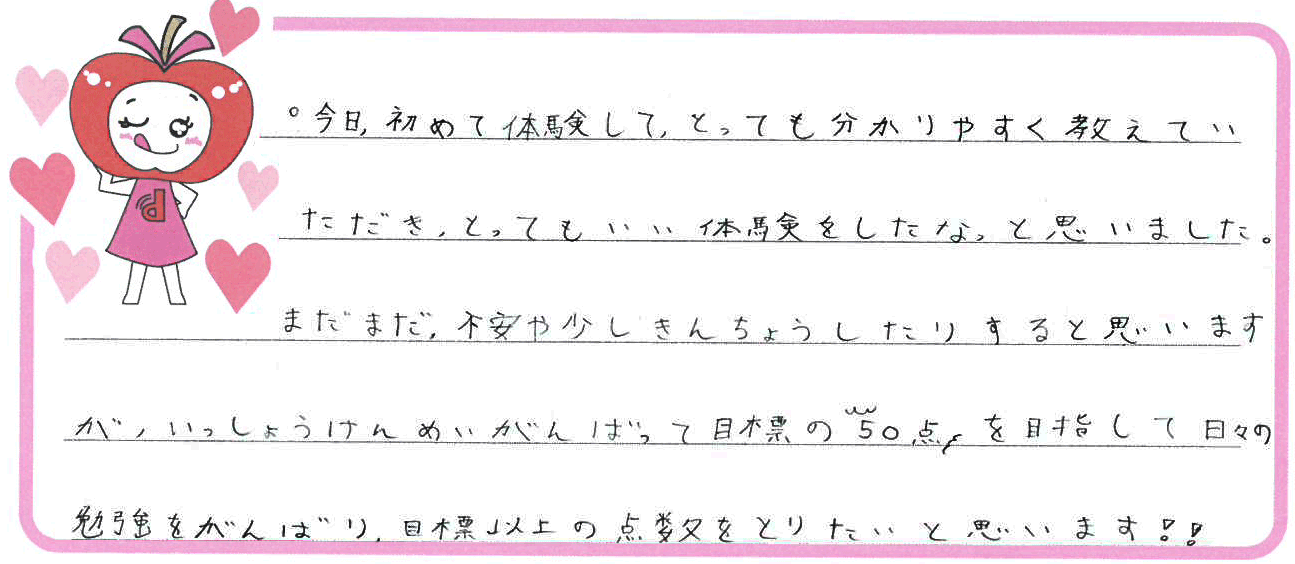 。今日,初めて体験して,とっても分かりやすく教えてい
ただき,とってもいい体験をしたなっと思いました。
まだまだ,不安や少しきんちょうしたりすると思います
が,いっしょうけんめいがんばって目標の50点を目指して日々の
勉強をがんばり,目標以上の点数をとりたいと思います!!